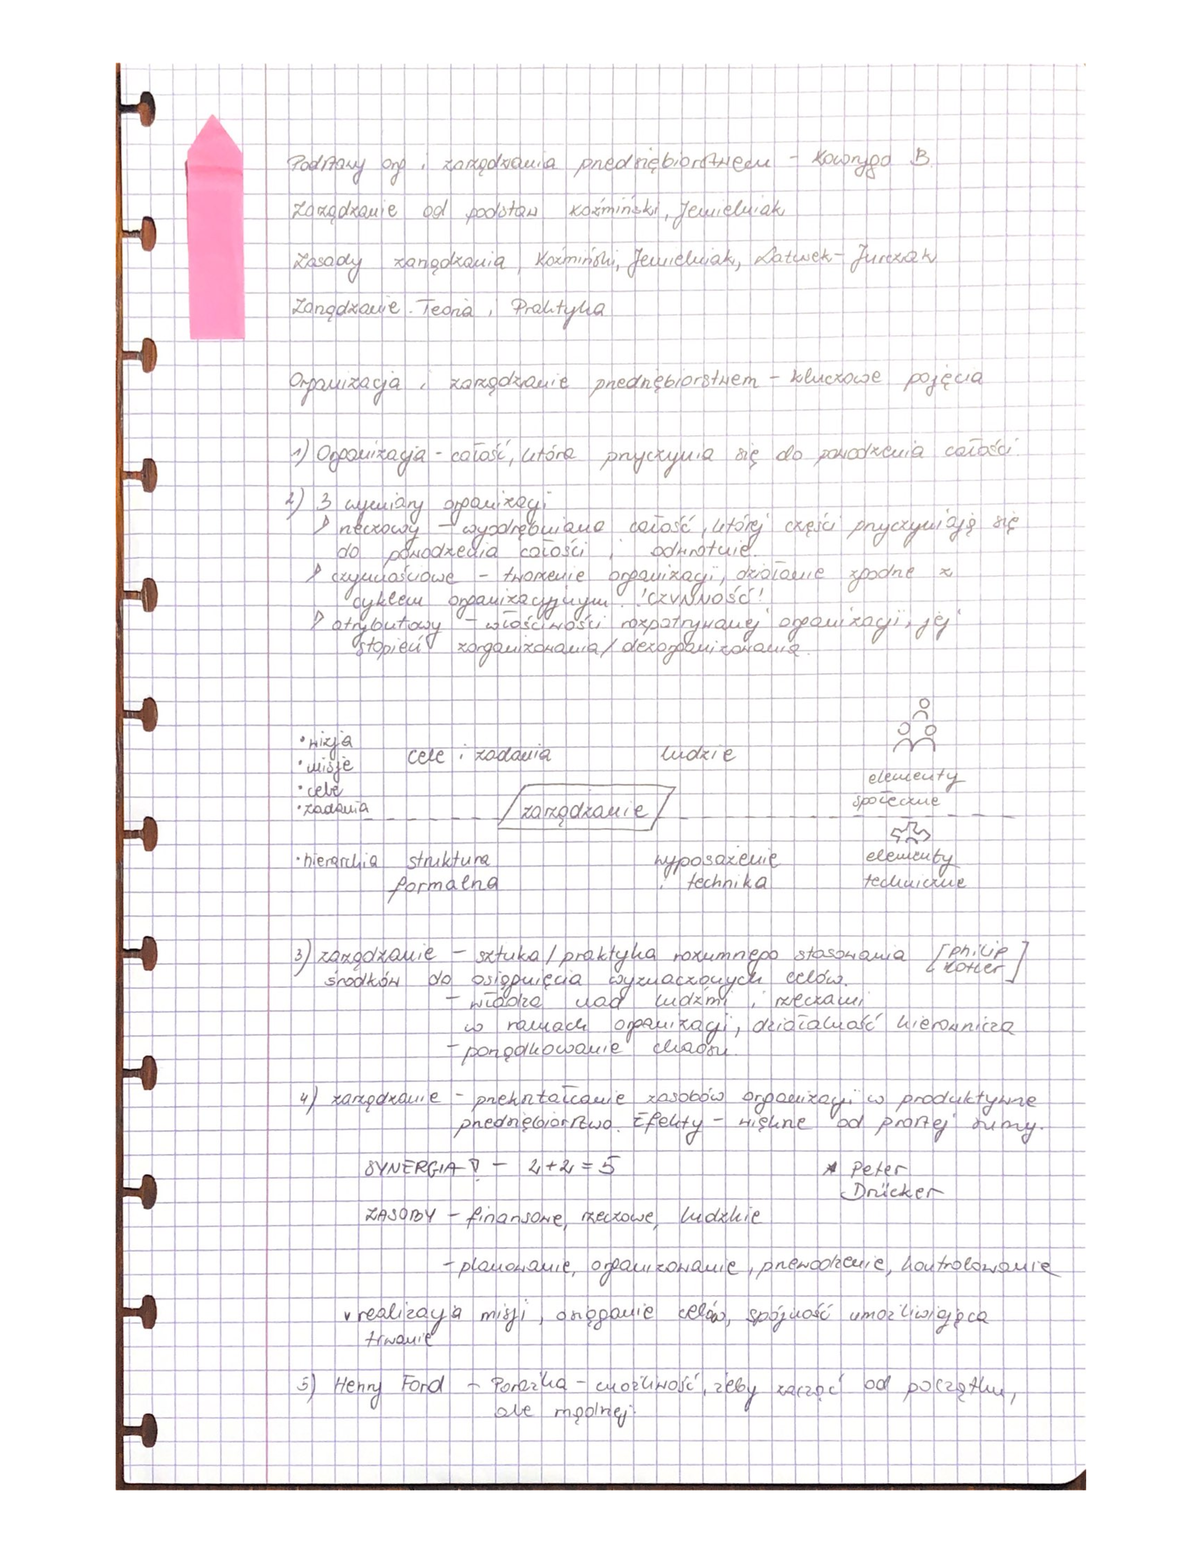 Podstawy org i zarządzania przedsiębiorstwem - Kaczyrgo B.
Zarządzanie od podstaw Koźmiński, Jemielniak
Zasady zarządzania, Koźmiński, Jemielniak, Latusek-Jurczak
Zarządzanie. Teoria i Praktyka
Organizacja i zarządzanie przedsiębiorstwem - kluczowe pojęcia
1) Organizacja - całość, która przyczynia się do powodzenia całości
2) 3 wymiary organizacji
rzeczowy - wyodrębniana całość, której części przyczyniają się
do powodzenia całości i odwrotnie.
czynnościowe - tworzenie organizacji, działanie zgodne z
cyklem organizacyjnym. !CZYNNOŚĆ!
atrybutowy - właściwości rozpatrywanej organizacji, jej
stopień zorganizowania/dezorganizowania.
• wizja
• misje
• cele
• zadania
cele i zadania
ludzie
elementy
społeczne
zarządzanie
• hierarchia
struktura
formalna
wyposażenie
i technika
elementy
techniczne
3) zarządzanie - sztuka/praktyka rozumnego stosowania [Philip
środków do osiągnięcia wyznaczonych celów. Kotler]
- władza nad ludźmi i rzeczami
w ramach organizacji, działalność kierownicza
- porządkowanie chaosu.
4) zarządzanie - przekształcanie zasobów organizacji w produktywne
przedsiębiorstwo. Efekty - większe od prostej sumy.
SYNERGIA ! - 2+2=5
* Peter
Drücker
ZASOBY - finansowe, rzeczowe, ludzkie
- planowanie, organizowanie, przewodzenie, kontrolowanie
v realizacja misji, osiąganie celów, spójność umożliwiająca
trwanie
5) Henry Ford - Porażka - możliwość, żeby zacząć od początku,
ale mądrzej.